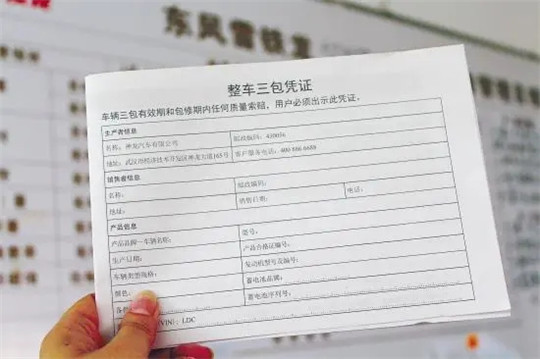 东风雪铁龙
整车三包凭证
车辆三包有效期和包修期内任何质量索赔，用户必须出示此凭证。
生产者信息
名称：神龙汽车有限公司 邮政编码：430056
地址：武汉市经济技术开发区神龙大道165号 客户服务电话：400 886 6688
销售者信息
名称： 邮政编码：
地址： 销售日期： 电话：
产品信息
产品品牌—车辆名称： 型号：
生产日期： 产品合格证编号：
车辆类型规格： 发动机型号及编号：
颜色： 蓄电池品牌：
蓄电池序列号：
VIN）：LDC